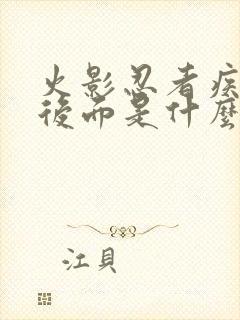 火影忍者疾
後而是什麼
江貝